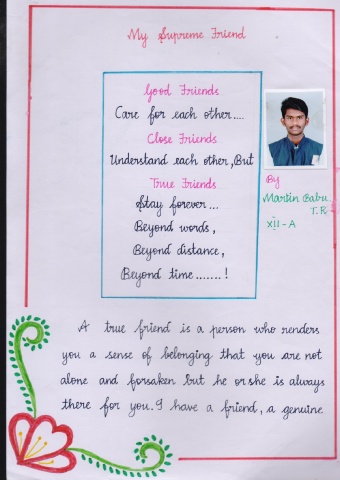 My Supreme Friend
Good Friends
Care for each other....
Close Friends
Understand each other, But
True Friends
Stay forever...
Beyond words,
Beyond distance,
Beyond time.......!
By
Martin Babu.
T.R
XII - A
A true friend is a person who renders
you a sense of belonging that you are not
alone and forsaken but he or she is always
there for you. I have a friend, a genuine